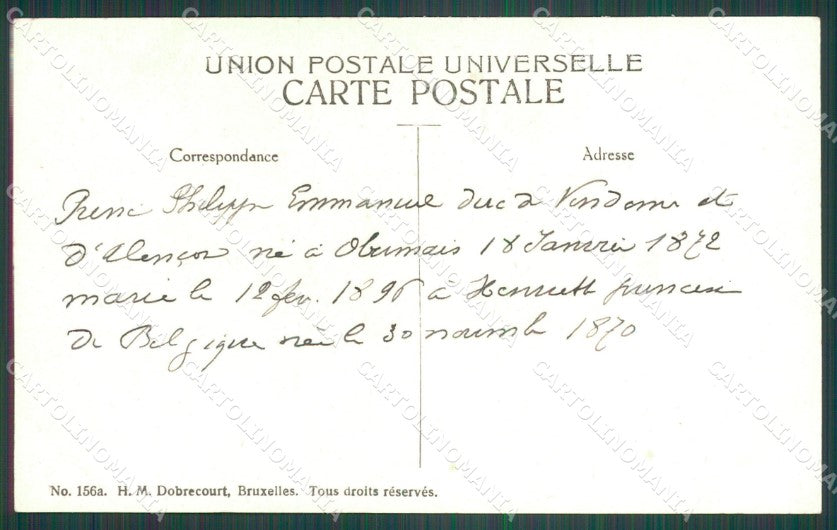 UNION POSTALE UNIVERSELLE
CARTE POSTALE
Correspondance
Adresse
Philippe Emmanuel duc de Vendome et
d'Alençon né à 18 Janvier 1872
marié le 12 fév. 1896 à Henriette princesse
de Belgique née le 30 novemb 1870
No. 156a. H. M. Dobrecourt, Bruxelles. Tous droits réservés.
CARTOLINOMANIA